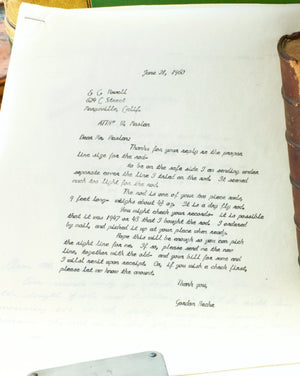 June 21, 1960
E. C. Powell
609 C Street
Marysville, Calif.
ATTN: Mr. Maslan
Dear Mr. Maslan:
Thanks for your reply to the proper
line size for the rod.
To be on the safe side I am sending under
separate cover the line I tried on the rod. It seemed
much too light for the rod.
The rod is one of your two piece rods,
9 feet long - weighs about 5½ oz. It is a dry fly rod.
You might check your records - it is possible
that it was 1947 or 48 that I bought the rod. I ordered
by mail, and picked it up at your place when ready.
Hope this will be enough so you can pick
the right line for me. If so, please send me the new
line, together with the old - and your bill for same and
I will remit upon receipt. Or, if you wish a check first,
please let me know the amount.
Thank you,
Gordon